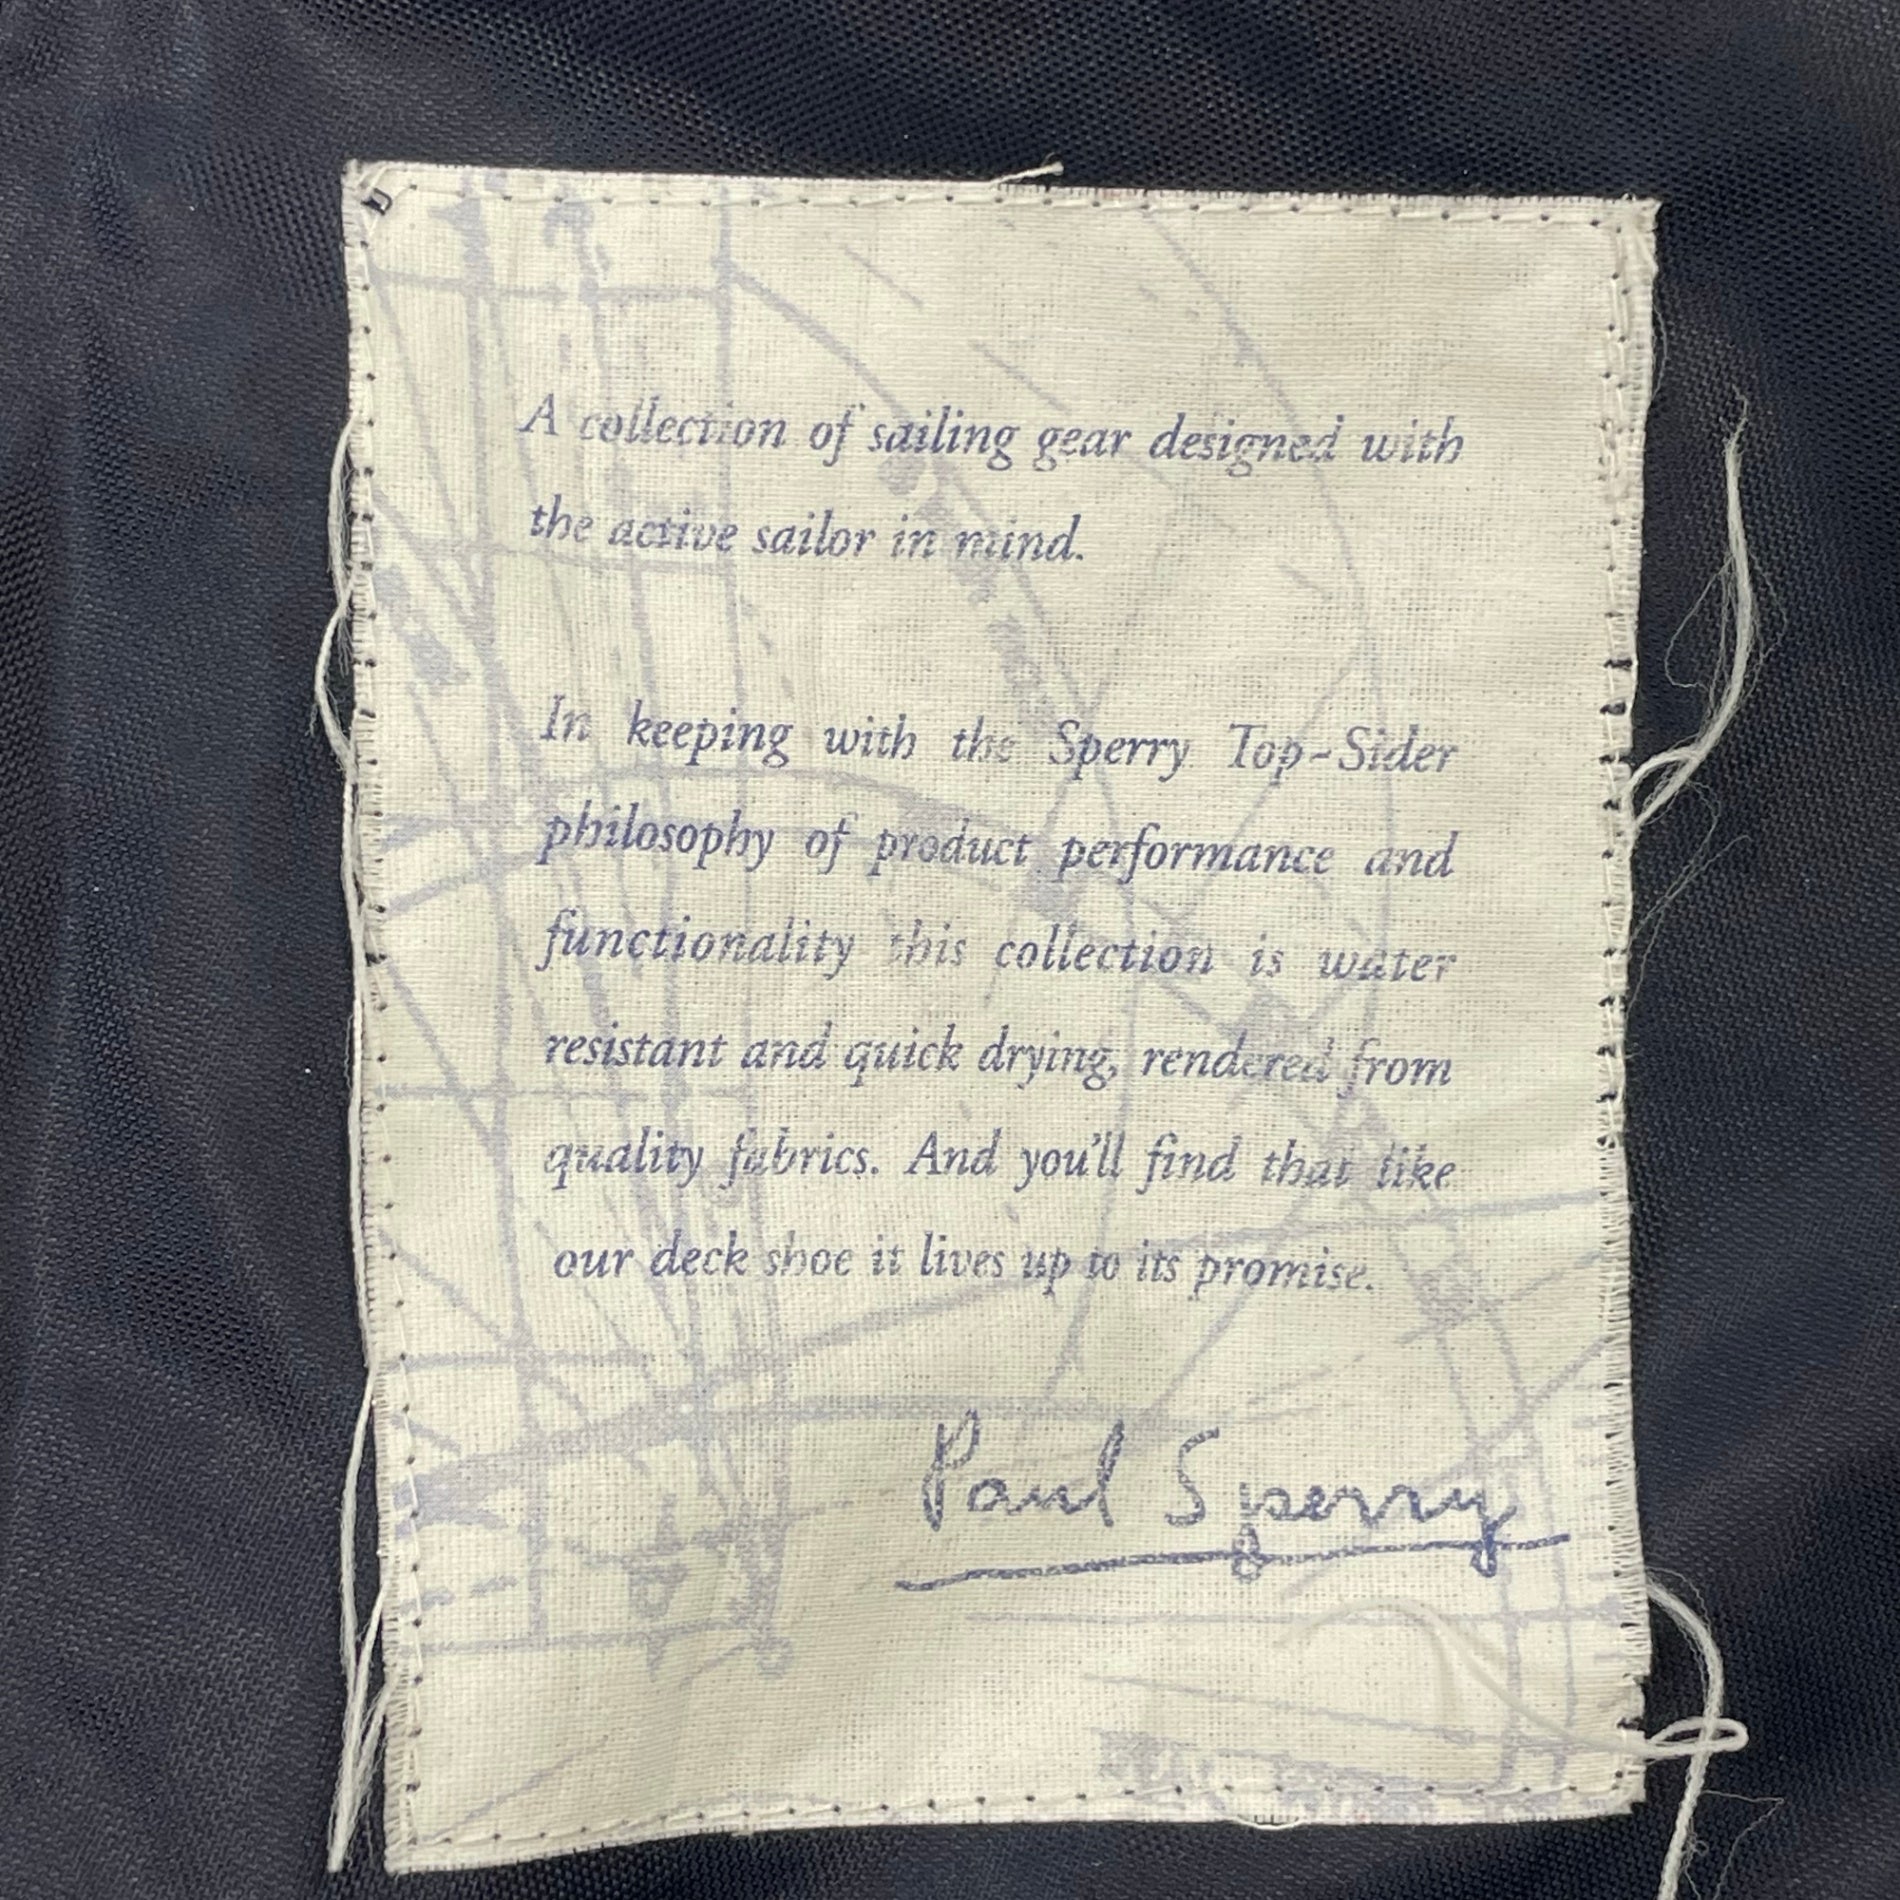 A collection of sailing gear designed with
the active sailor in mind.
In keeping with the Sperry Top-Sider
philosophy of product performance and
functionality this collection is water
resistant and quick drying, rendered from
quality fabrics. And you'll find that like
our deck shoe it lives up to its promise.
Paul Sperry